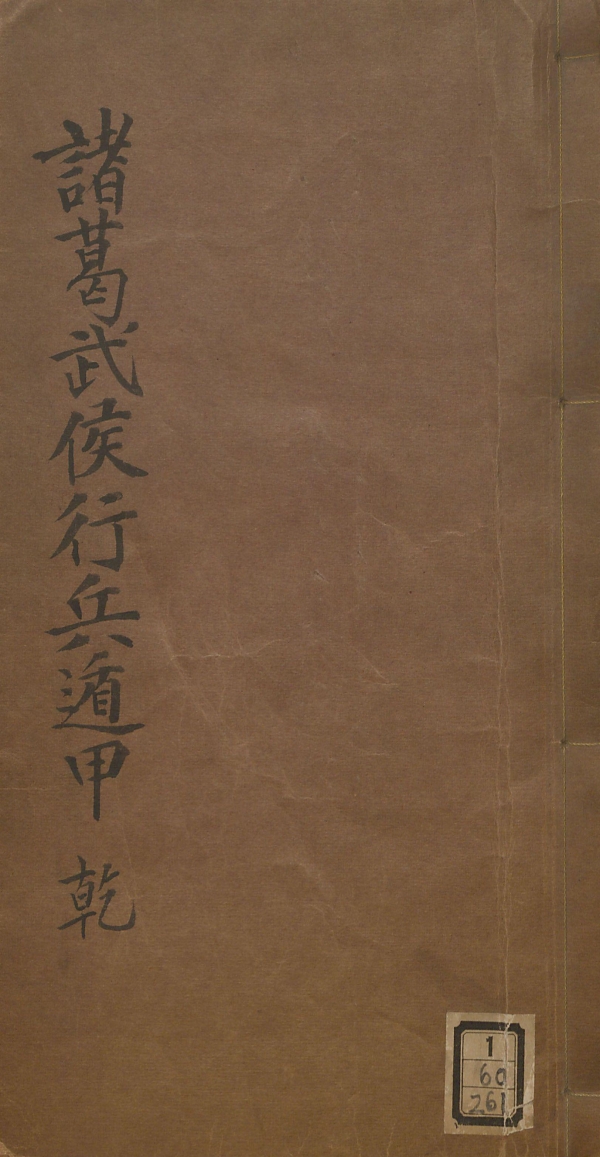 諸葛武侯行兵遁甲 乾
1
60
261